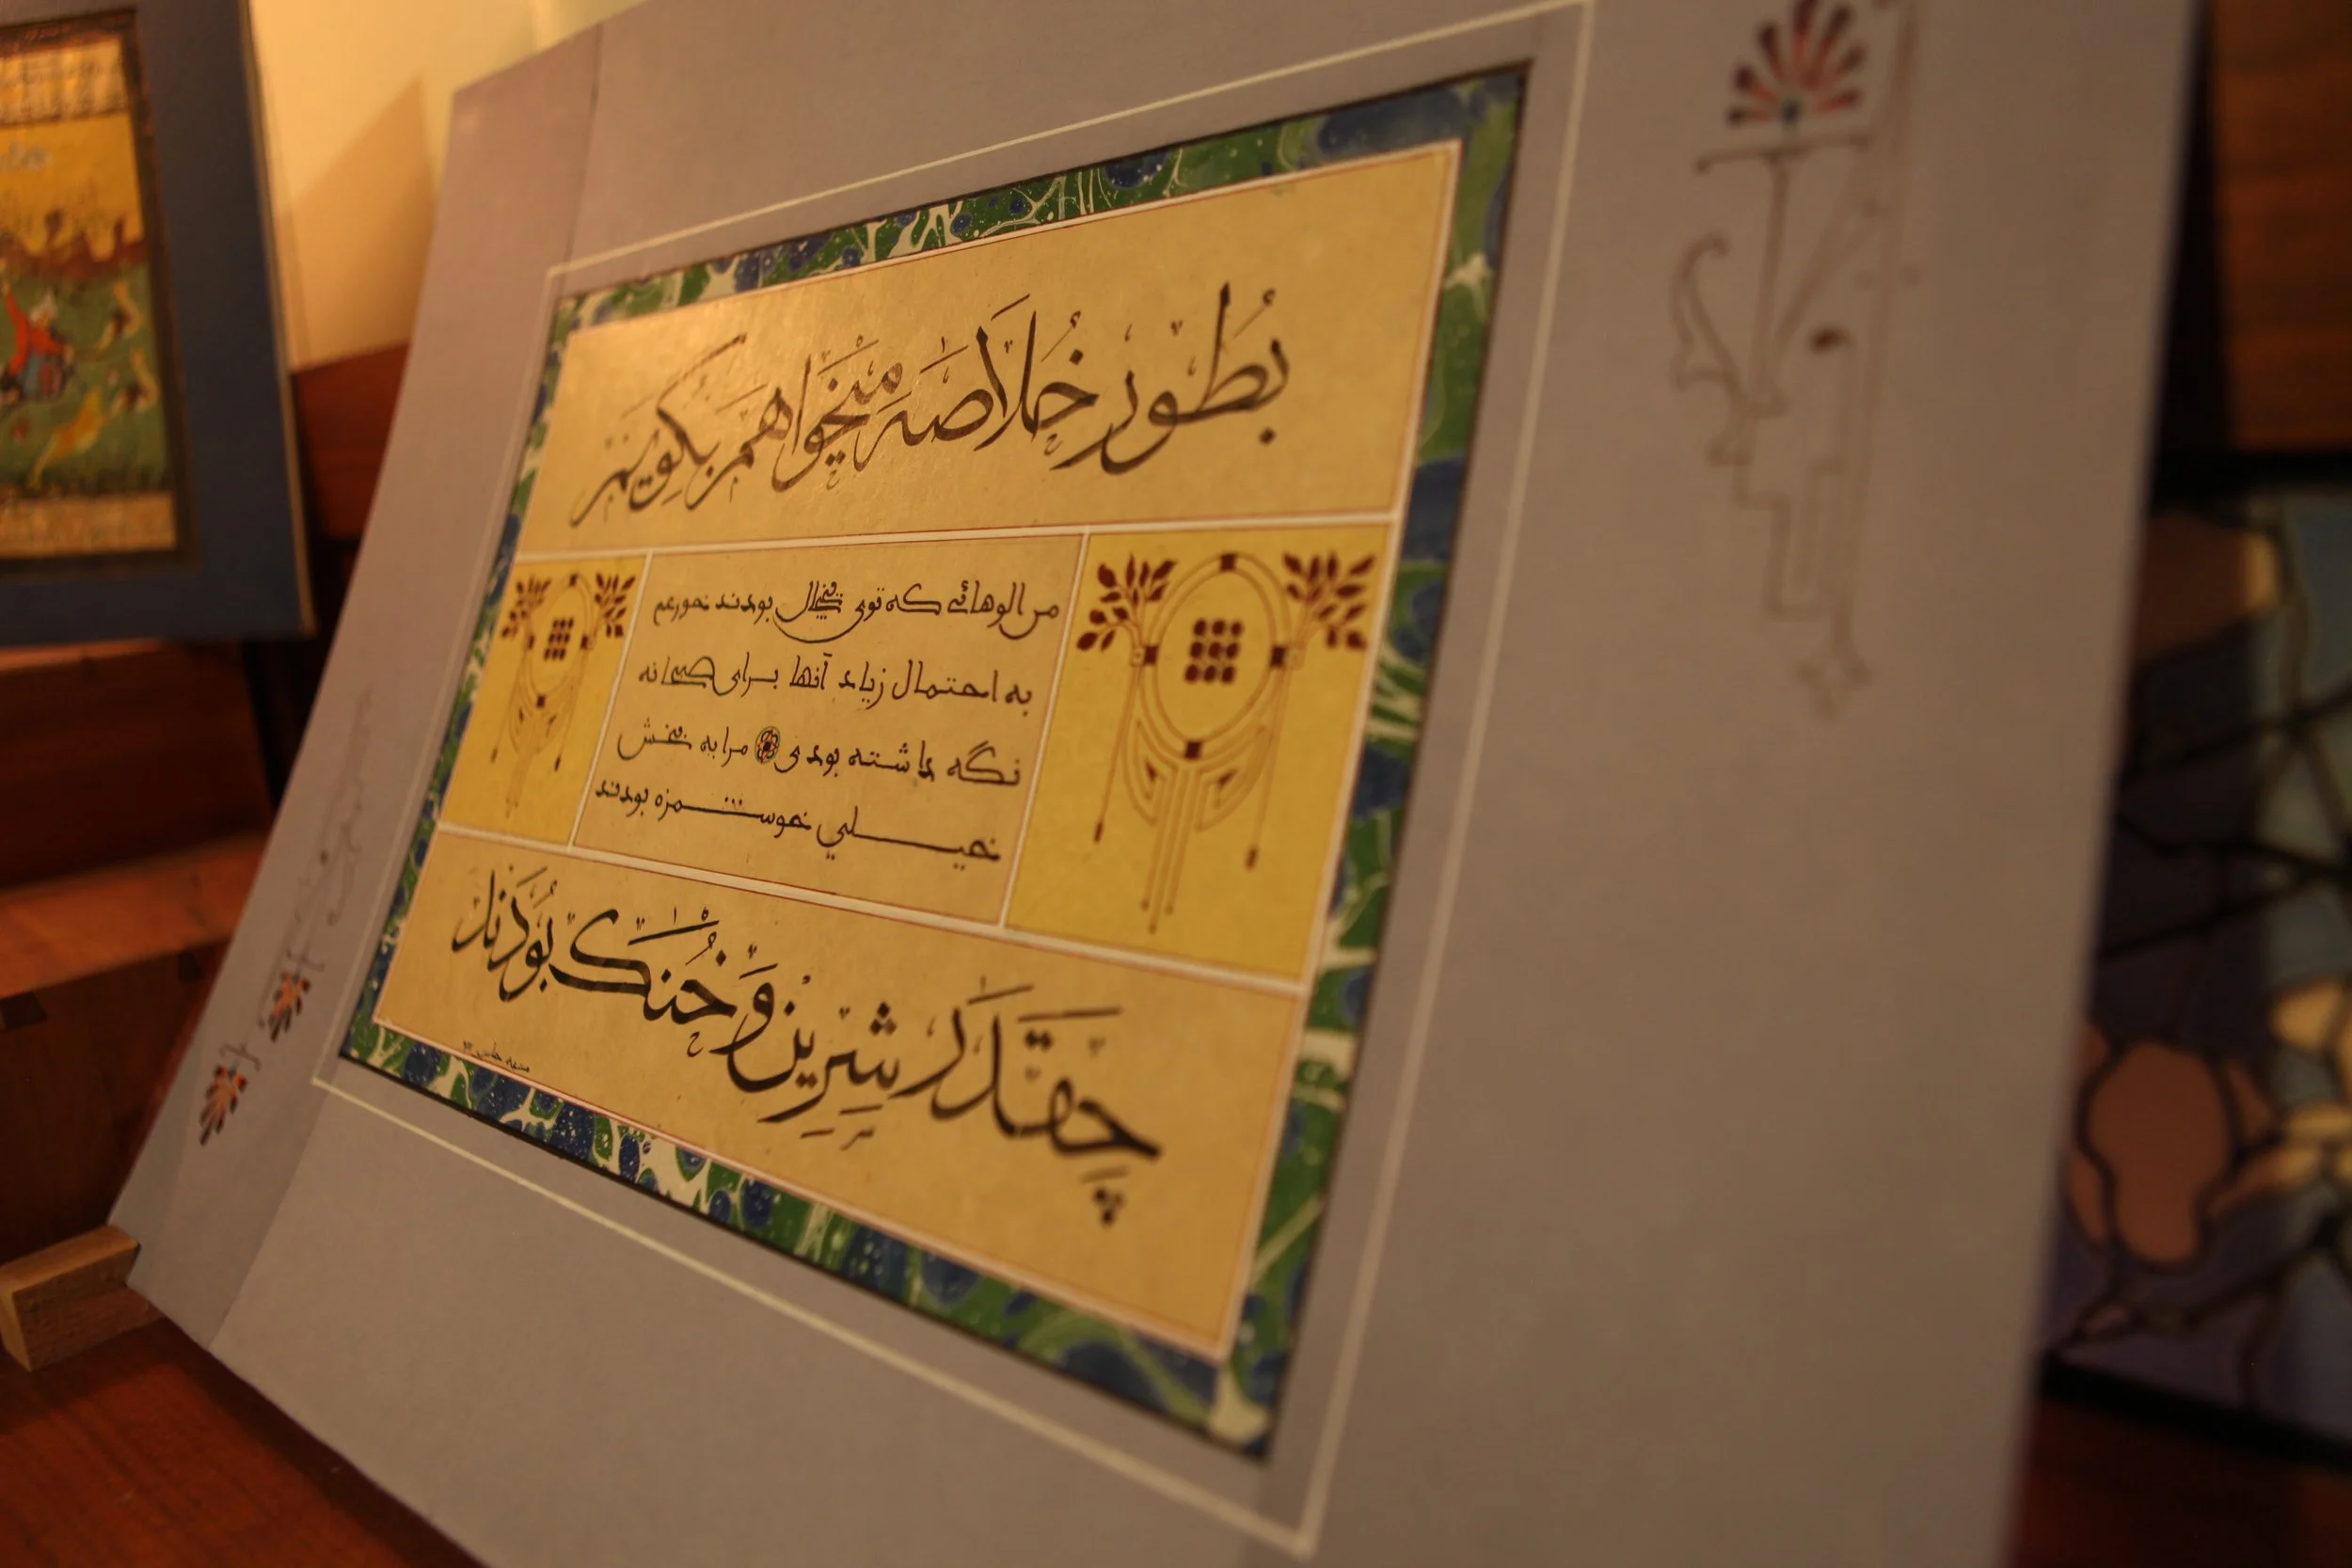 بُطور خُلاصَه میخَواهَم بِگُویَم
من الوهائی که توی یخچال بودند خوردم
به احتمال زیاد آنها برای صبحانه
نگه داشته بودی مرا به بخش
خیلی خوشمزه بودند
چِقَدَر شِرین وَ خُنَک بُودَند